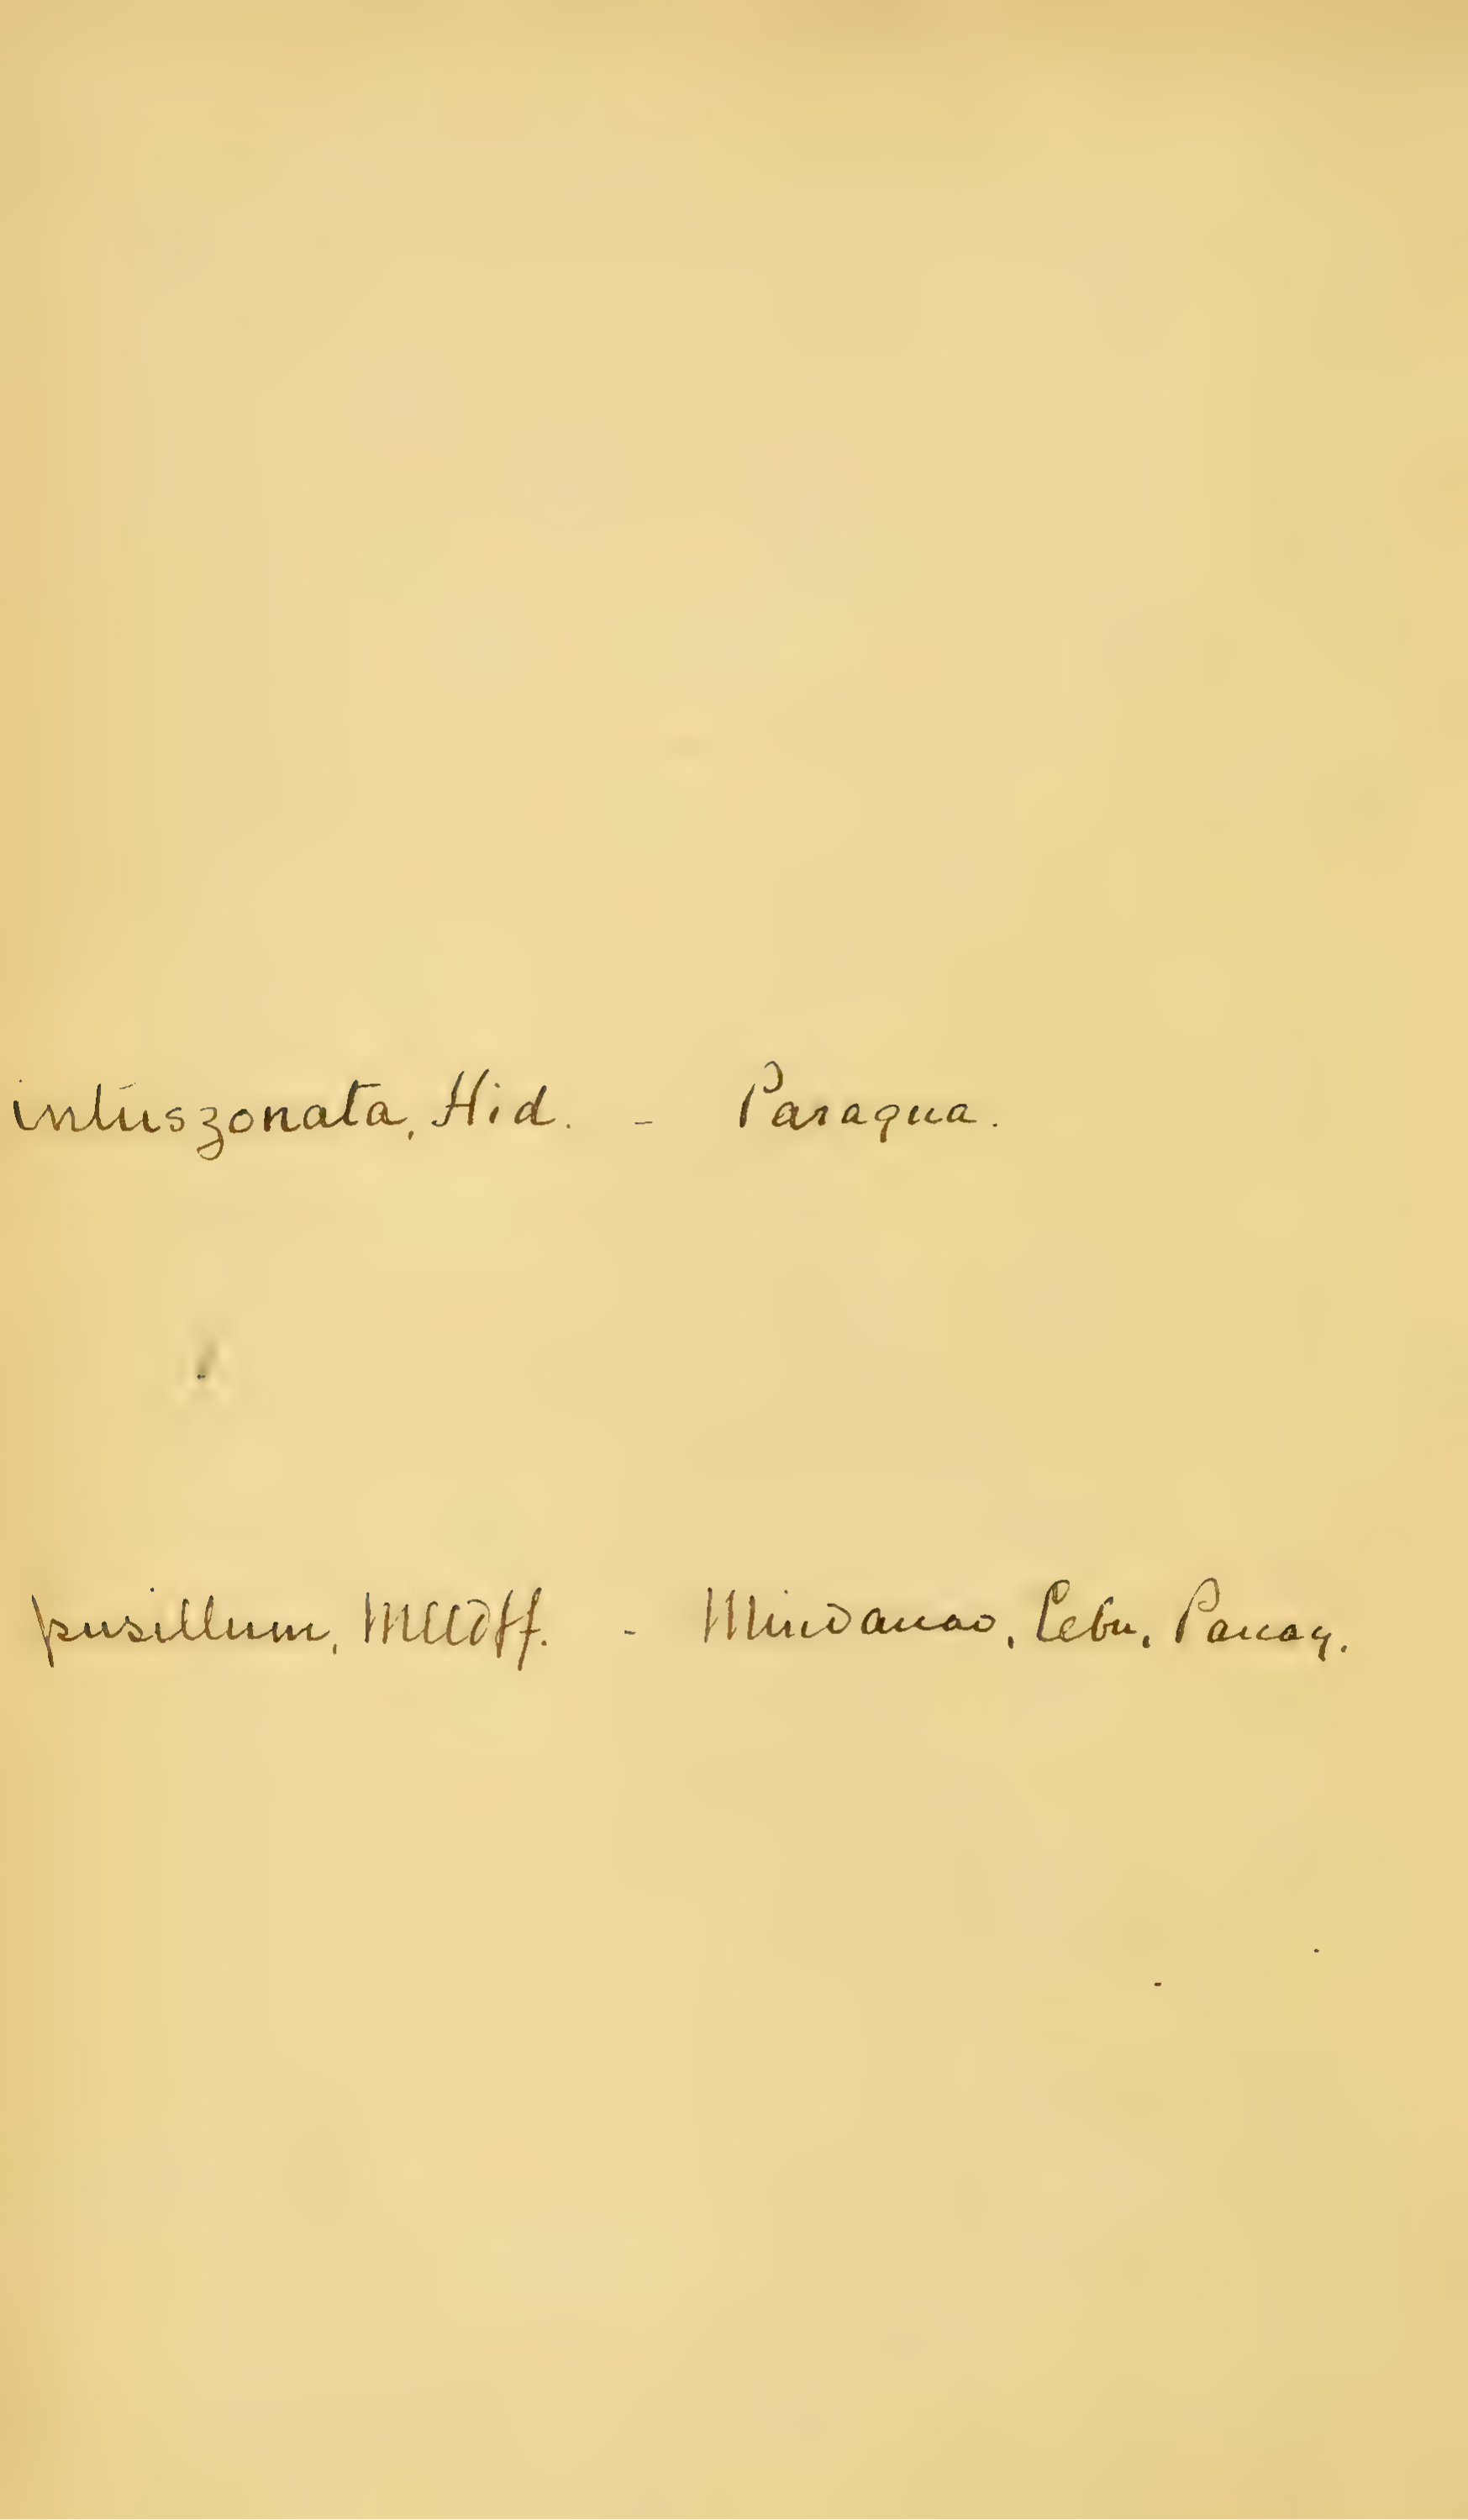 intuszonata, Hid. - Paragua.
pusillum, Mlldff. - Mindanao, Cebu, Panay.